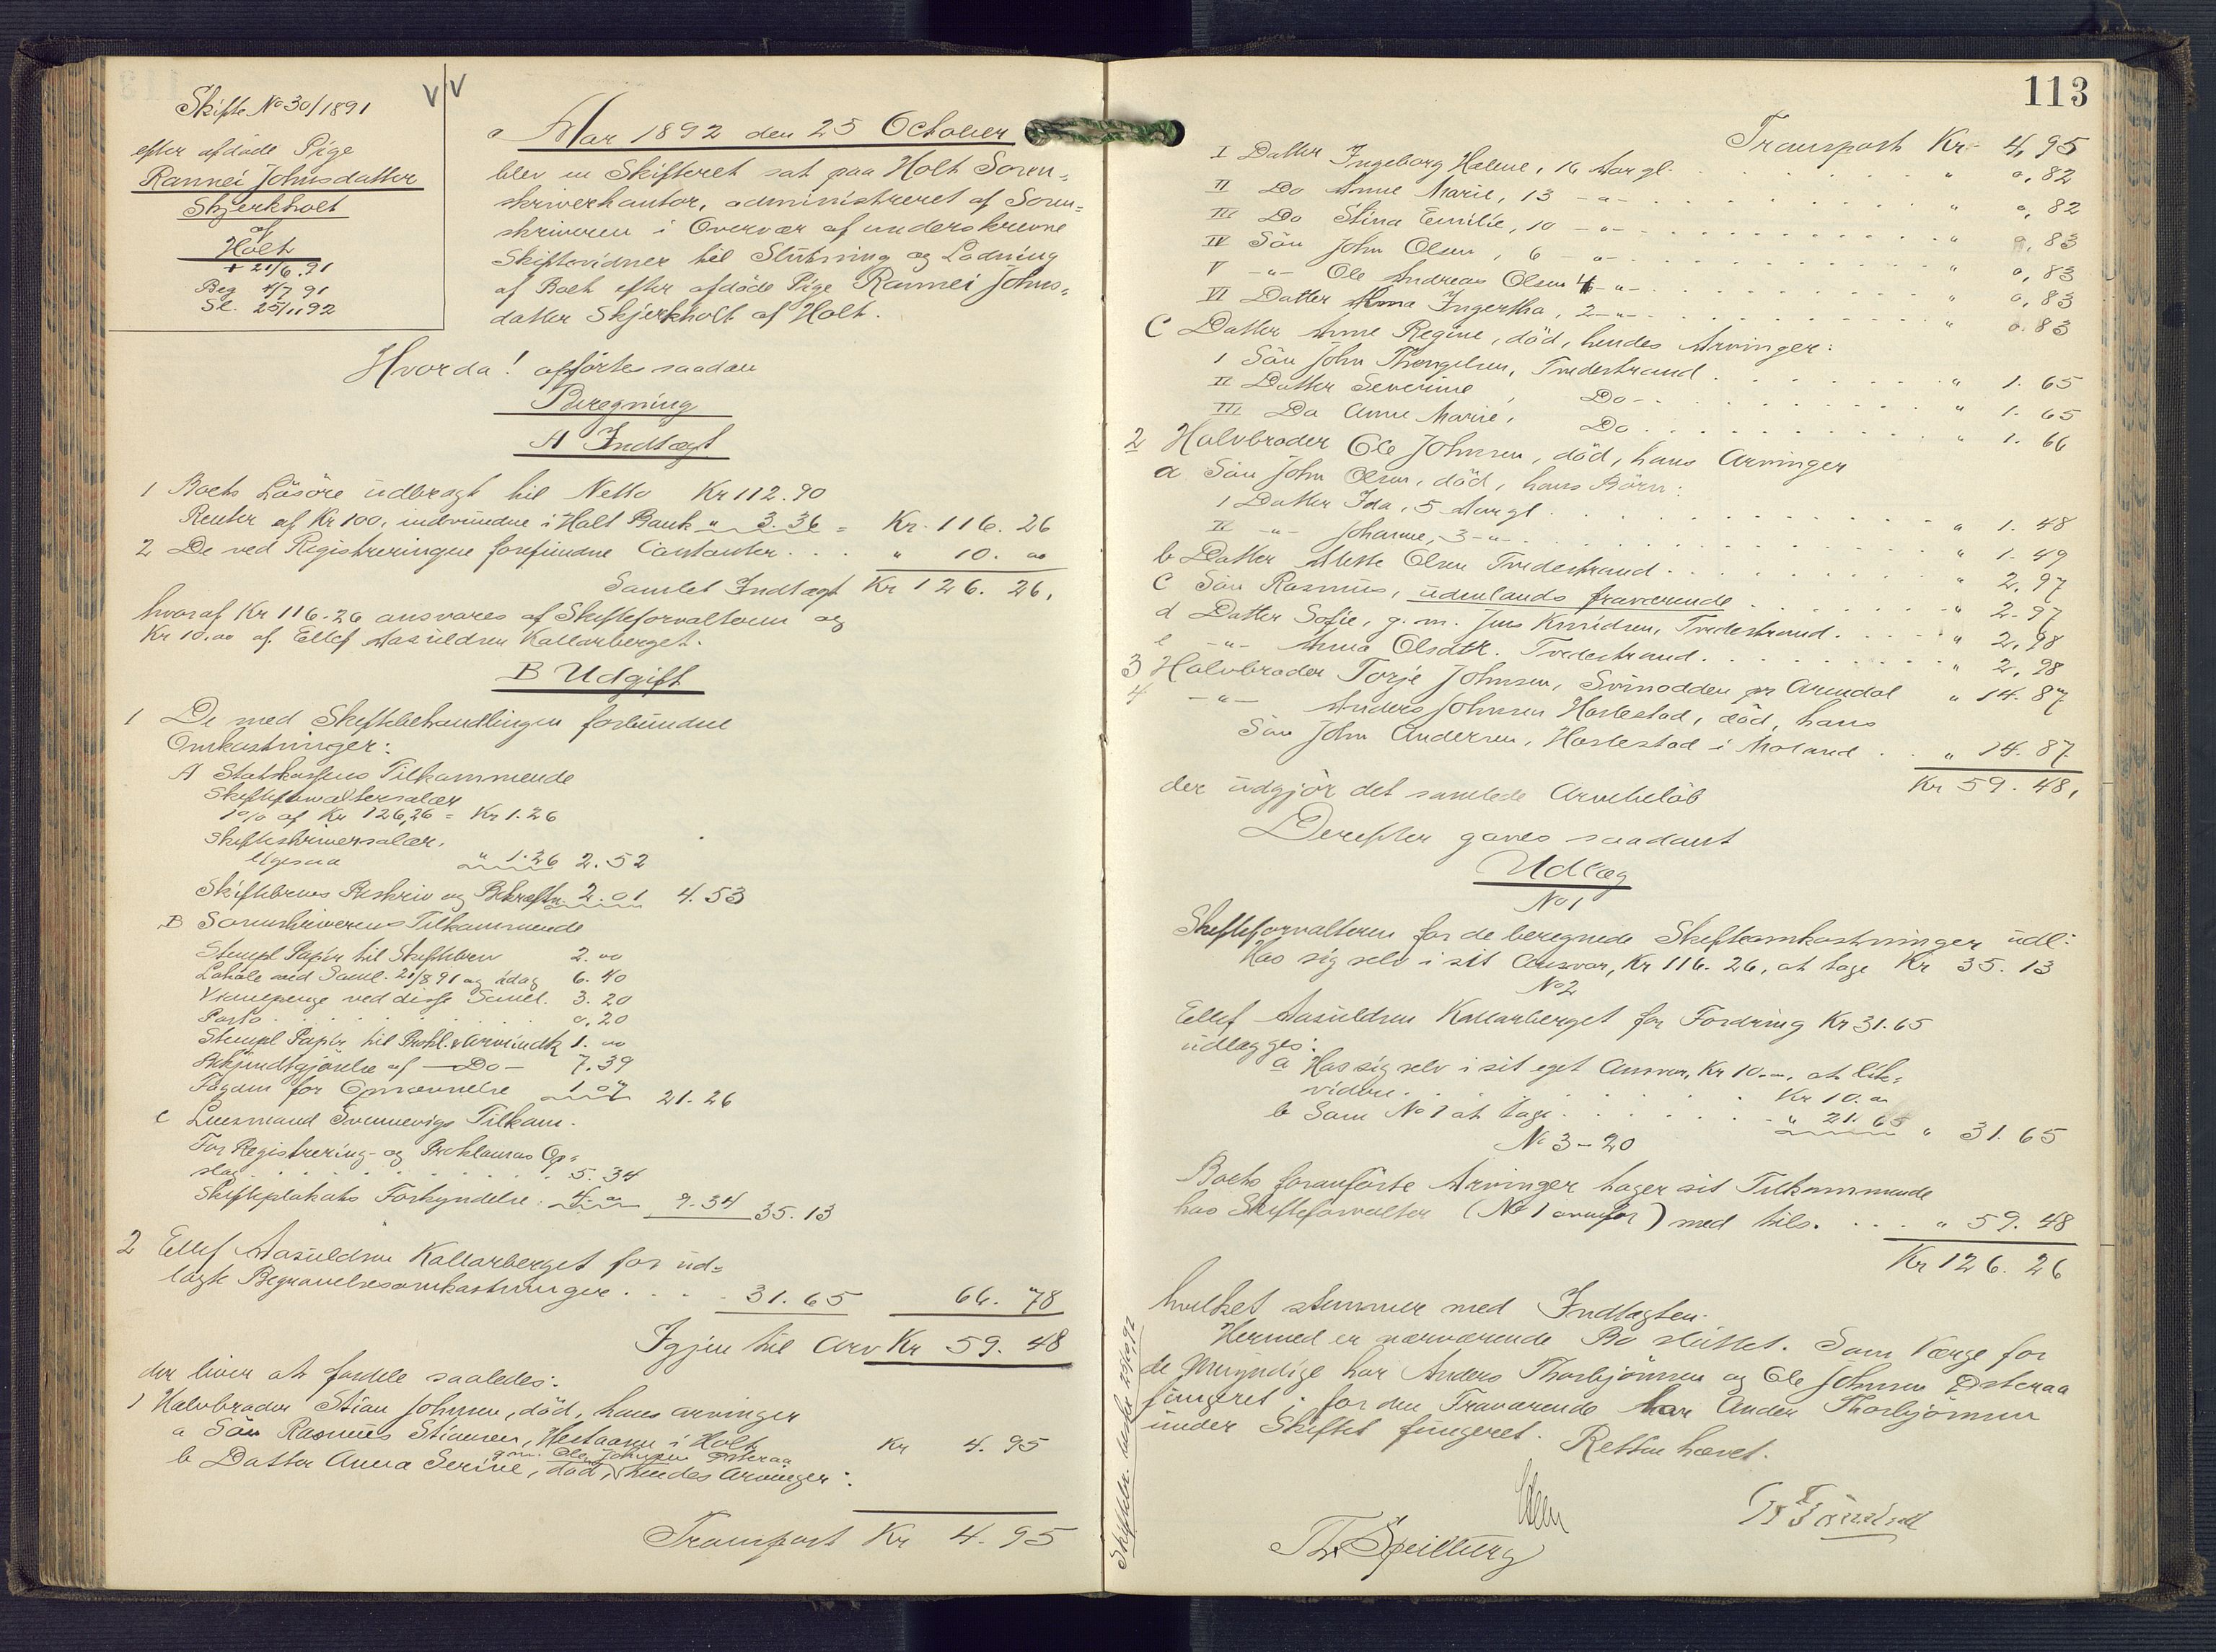 Skifte No 30/1891
efter afdöde Pige
Rannei Johnsdatter
Skjerkholt
af
Holt
+ 21/6. 91
Beg 4/7 91
Sl. 25/11 92
Aar 1892 den 25 October
blev en Skifteret sat paa Holt Soren-
skriverkontor, administreret af Soren-
skriveren i Overvær af underskrevne
Skiftevidner til Slutning og Lodning
af Boet efter afdöde Pige Rannei Johns-
datter Skjerkholt af Holt.
Hvorda! opförtes saadan
Beregning
A Indtægt
1 Boets Lösöre udbragt til Netto Kr 112.90
Renter af Kr 100, indvundne i Holt Bank " 3.36 = Kr. 116. 26
2 De ved Registreringen forefundne Contanter . . . " 10. 00
Samlet Indtægt Kr 126. 26.
hvoraf Kr 116.26 ansvares af Skifteforvalteren og
Kr 10.00 af Ellef Aasuldsen Kallarberget.
B Udgift
1 De med Skiftebehandlingen forbundne
Omkostninger:
A Statskassens Tilkommende
Skifteforvaltersalær
1% af Kr 126,26 = Kr 1.26
Skifteskriversalær.
ligesaa " 1.26 2.52
Skiftebrevs Beskriv og Bekræftn. 2.01 4.53
B Sorenskriverens Tilkommende
Stempl Papir til Skiftebrev 2.00
Lokale ved Saml. 21/8 91 og idag 6.40
Vidnepenge ved disse Saml. 3.20
Porto . . . 0.20
Stempl Papir til Prokl. & Arveindk 1.00
Bekjendtgjörelse af —Do— 7.39
Fogden for Opnævnelse 1.07 21.26
C Lensmand Svennevigs Tilkom.
For Registrering- og Proklamas Op-
slag . . . 5.34
Skifteplakats Forkyndelse. 4.00 9.34 35.13
2 Ellef Aasuldsen Kallarberget for ud-
lagte Begravelsesomkostninger . . . 31.65 66. 78
Igjen til Arv Kr 59. 48
der bliver at fordele saaledes:
1 Halvbroder Stian Johnsen, död, hans arvinger
a Sön Rasmus Stiansen, i Holt Kr 4. 95
g. m. Ole Johnsen Österaa
b Datter Anna Serine, död, hendes arvinger:
Transport Kr 4. 95
113
Transport Kr. 4,95
I Datter Ingeborg Helene, 16 Aar gl. . . . " 0,82
II Do Anne Marie, 13 -"- . . . " 0,82
III Do Stina Emilie, 10 -"- . . . " 0,83
IV Sön John Olsen, 6 -"- . . . " 0,83
V -"- Ole Andreas Olsen 4 -"- . . . " 0,83
VI Datter Anna Ingertha, 2 -"- . . . " 0.83
C Datter Anne Regine, död, hendes Arvinger:
I Sön John Thengelsen, Tvedestrand . . . " 1. 65
II Datter Severine, Do - . . . " 1. 65
III Do Anne Marie, Do . . . " 1. 66
2 Halvbroder Ole Johnsen, död, hans Arvinger
a Sön John Olsen, död, hans Börn:
I Datter Ida, 5 Aar gl . . . " 1. 48
II -"- Johanne, 3 -"- . . . " 1. 49
b Datter Olsen Tvedestrand . . . " 2,97
C Sön Rasmus, udenlands fraværende . . . " 2.97
d Datter Sofie, g. m. Jens Knudsen, Tvedestrand . . . " 2,98
e -"- Anna Olsdtr. Tvedestrand . . . " 2,98
3 Halvbroder Torje Johnsen, Svinodden pr Arendal " 14.87
4 -"- Anders Johnsen Harlestad, död, hans
Sön John Andersen, Harlestad i Moland . . " 14. 87.
der udgjör det samlede Arvebelöb Kr 59. 48,
Derefter gaves saadant
Udlæg
No 1
Skifteforvalteren for de beregnede Skifteomkostninger udl:
Hos sig selv i sit Ansvar, Kr 116.26, at tage Kr 35. 13
No 2
Ellef Aasuldsen Kallarberget for Fordring Kr 31.65
udlægges:
a Hos sig selv i sit eget Ansvar, Kr 10.—, at lik-
videre . . . Kr 10.00
b Som No 1 at tage . . . " 21.65 " 31. 65
No 3 – 20
Boets foranförte Arvinger tager sit Tilkommende
hos Skifteforvalter (No 1 ovenfor) med tils. . . . " 59. 48
Kr 126. 26
hvilket stemmer med Indtægten.
Hermed er nærværende Bo sluttet. Som Værge for
de Umyndige har Anders Thorbjörnsen og Ole Johnsen Österaa
fungeret; for den Fraværende har Anders Thorbjörnsen
under Skiftet fungeret. Retten hævet.
Th. Speilburg